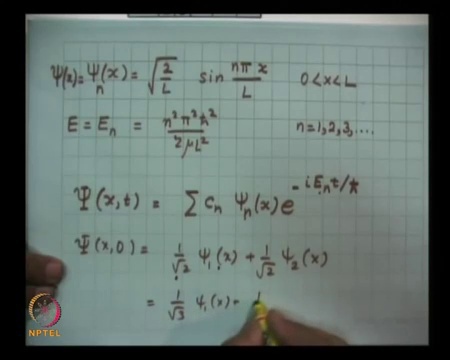 ψ(x) = ψ_n(x) = √(2/L) sin nπx/L 0 < x < L
E = E_n = n²π²ħ²/2μL² n = 1, 2, 3, ....
Ψ(x,t) = Σ c_n ψ_n(x) e^{-iE_n t/ħ}
Ψ(x,0) = 1/√2 ψ₁(x) + 1/√2 ψ₂(x)
= 1/√3 ψ₁(x) + 1
NPTEL